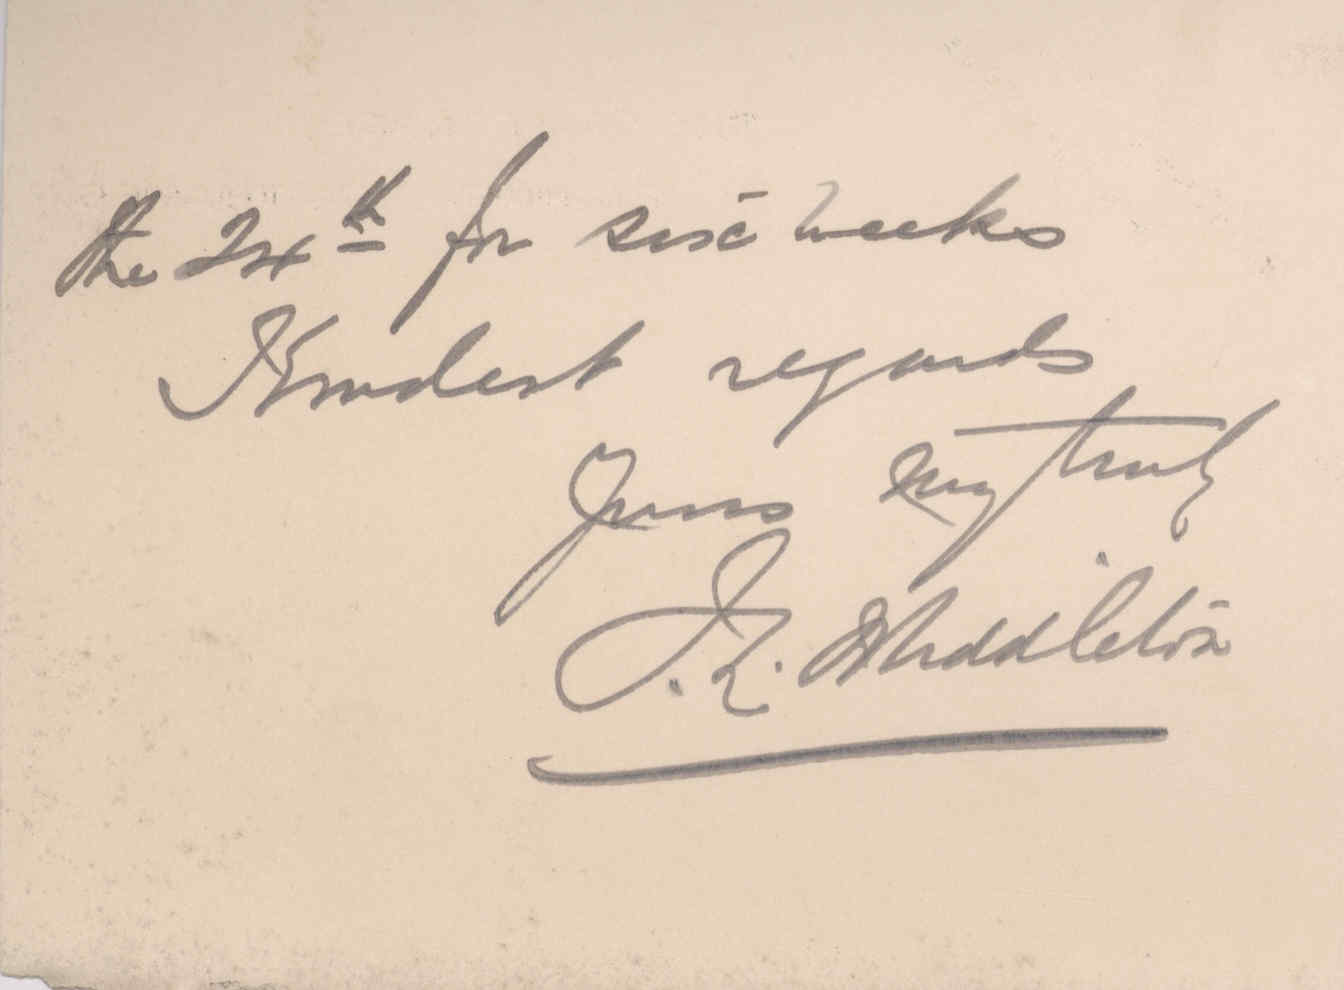 the 24th for six weeks
Kindest regards
Yours very truly
J. E. Middleton